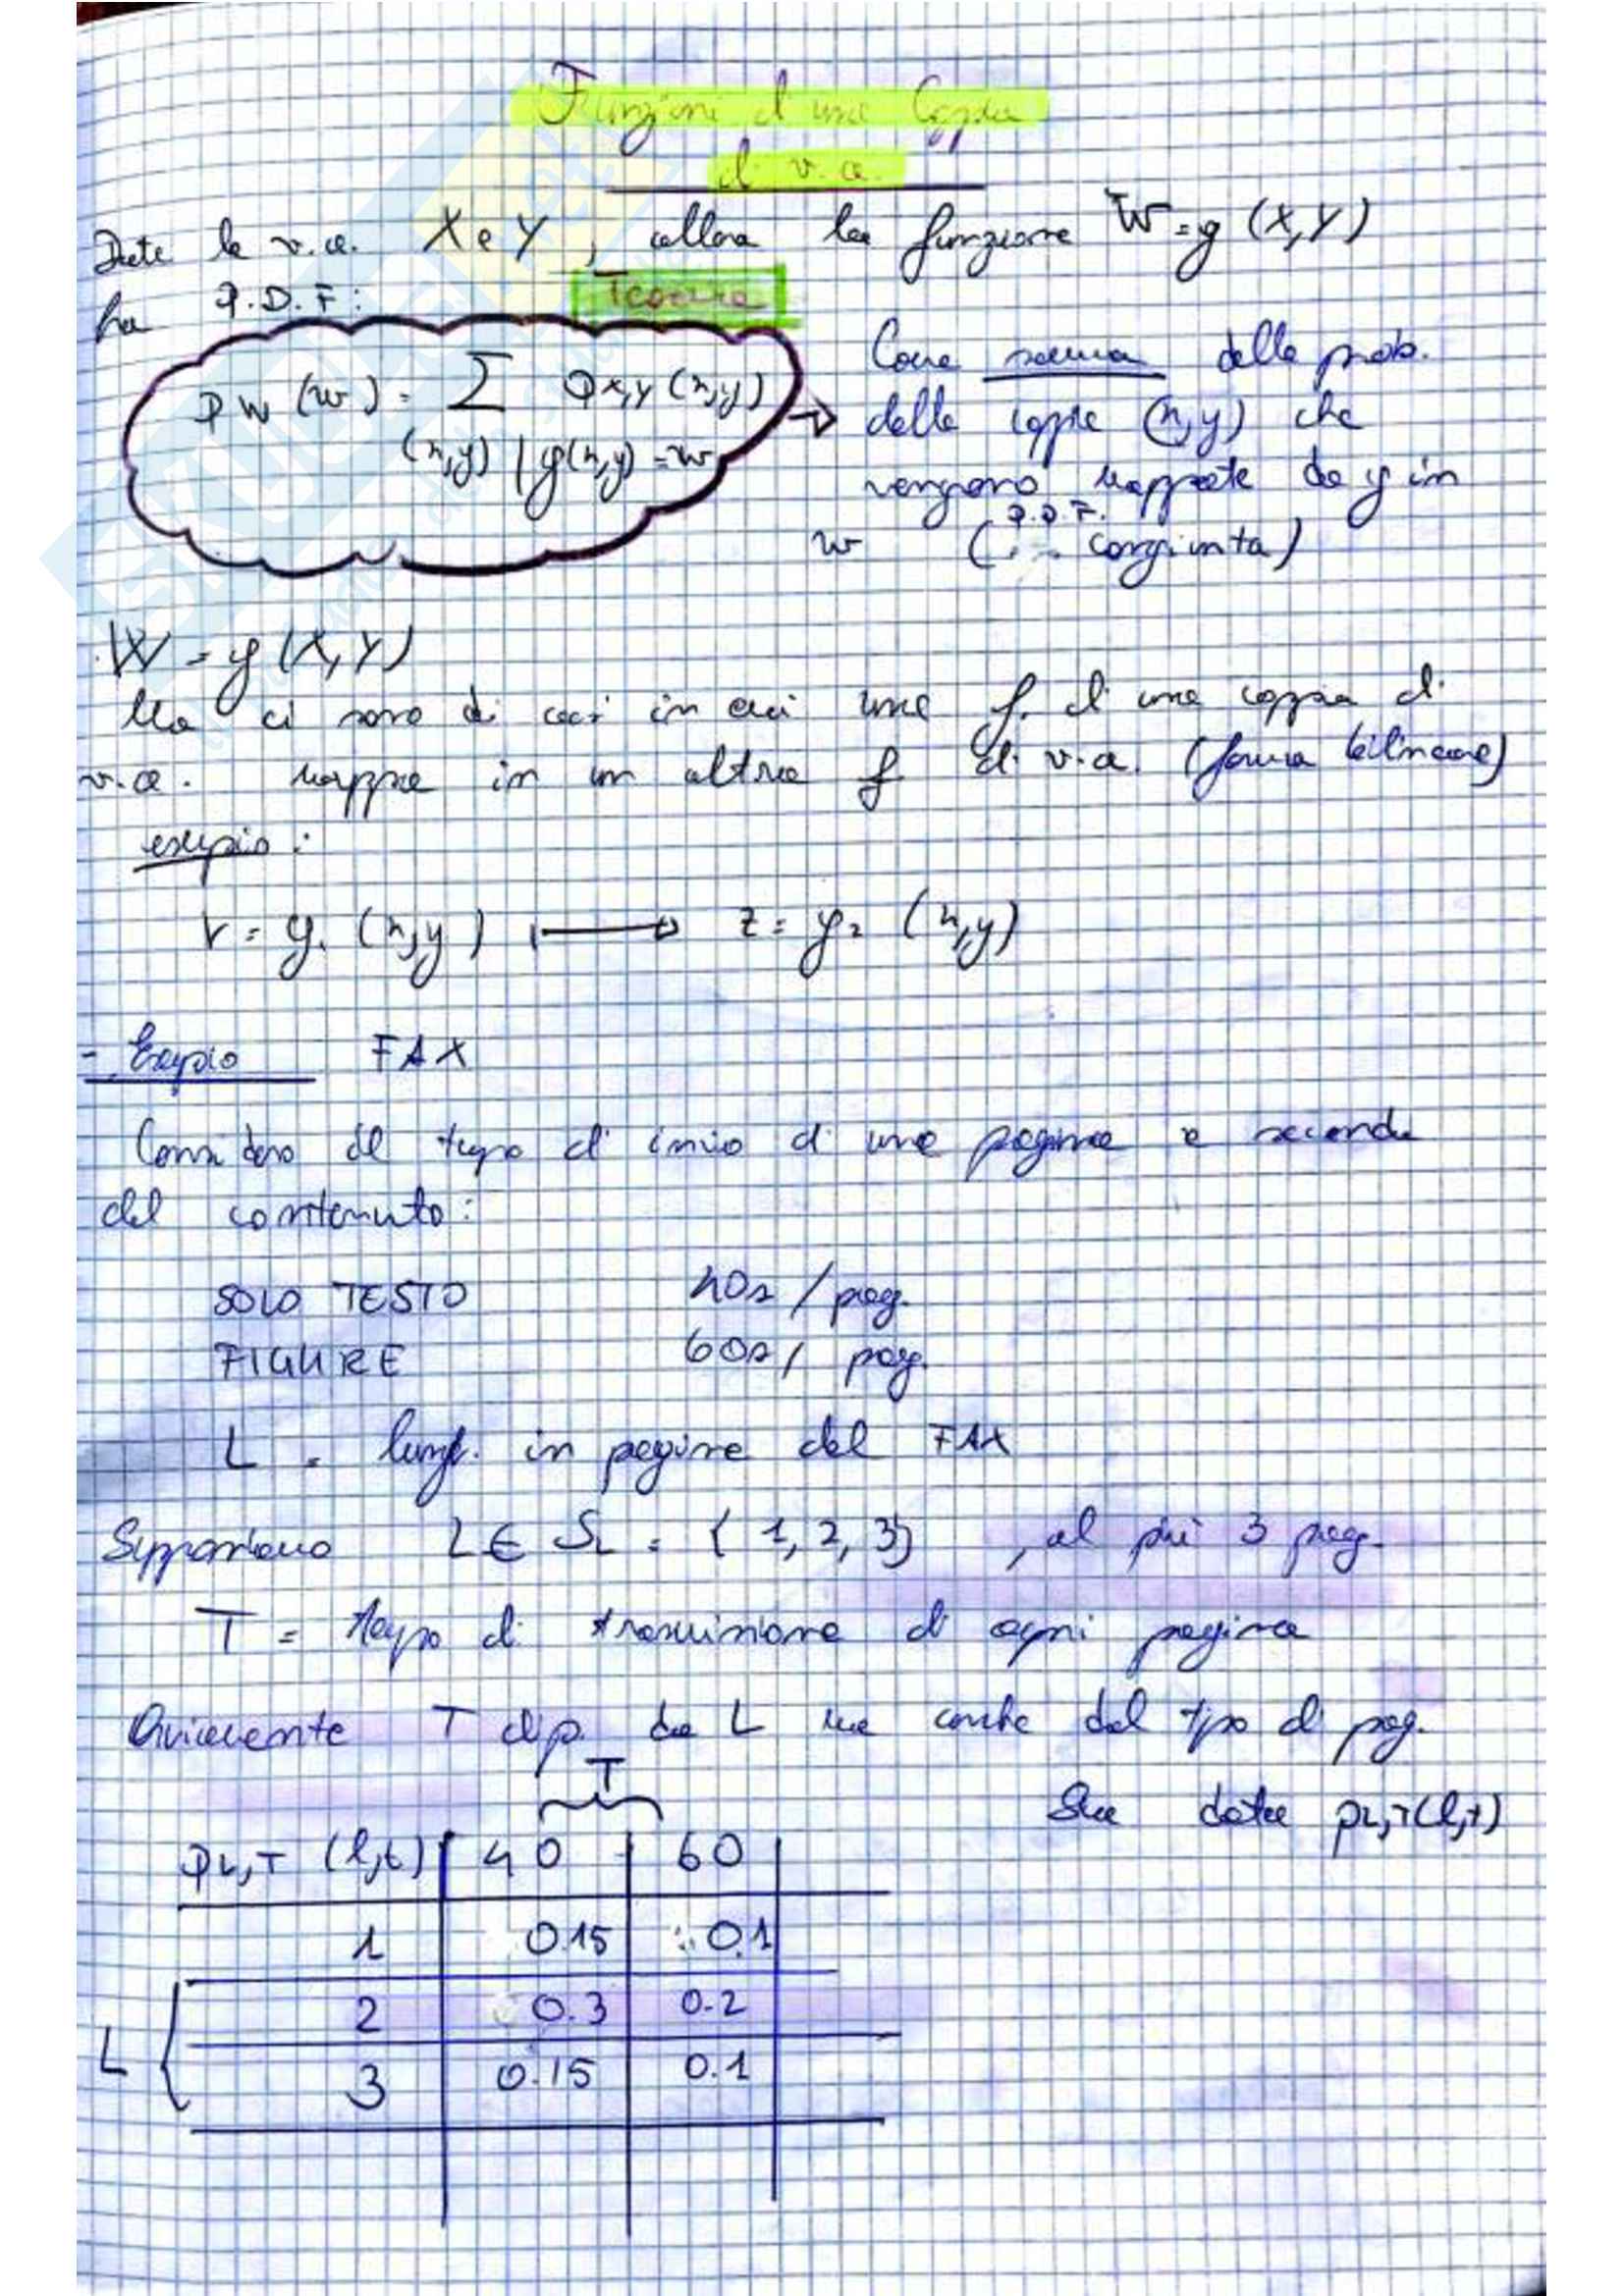 Funzioni di una Coppia
di v.a.
Date le v.a. X e Y, allora la funzione W=g(X,Y)
ha P.D.F:
Teorema
PW(w) = Σ PX,Y(x,y)
(x,y) | g(x,y)=w
→ Come somma delle prob.
delle coppie (x,y) che
vengono mappate da g in
w (P.D.F. congiunta)
W = g(X,Y)
Ma ci sono dei casi in cui una f. di una coppia di
v.a. mappa in un altra f di v.a. (forma bilineare)
esempio:
v = g1 (x,y) ⟼ z = g2 (x,y)
- Esempio FAX
Considero il tempo di invio di una pagina a seconda
del contenuto:
SOLO TESTO 40s / pag.
FIGURE 60s / pag.
L = lungh. in pagine del FAX
Supponiamo L ∈ SL = {1,2,3}, al più 3 pag.
T = tempo di trasmissione di ogni pagina
Ovviamente T dip. da L ma anche dal tipo di pag.
T
Sia data pL,T(l,t)
PL,T (l,t) | 40 | 60
1 | 0.15 | 0.1
2 | 0.3 | 0.2
L
3 | 0.15 | 0.1